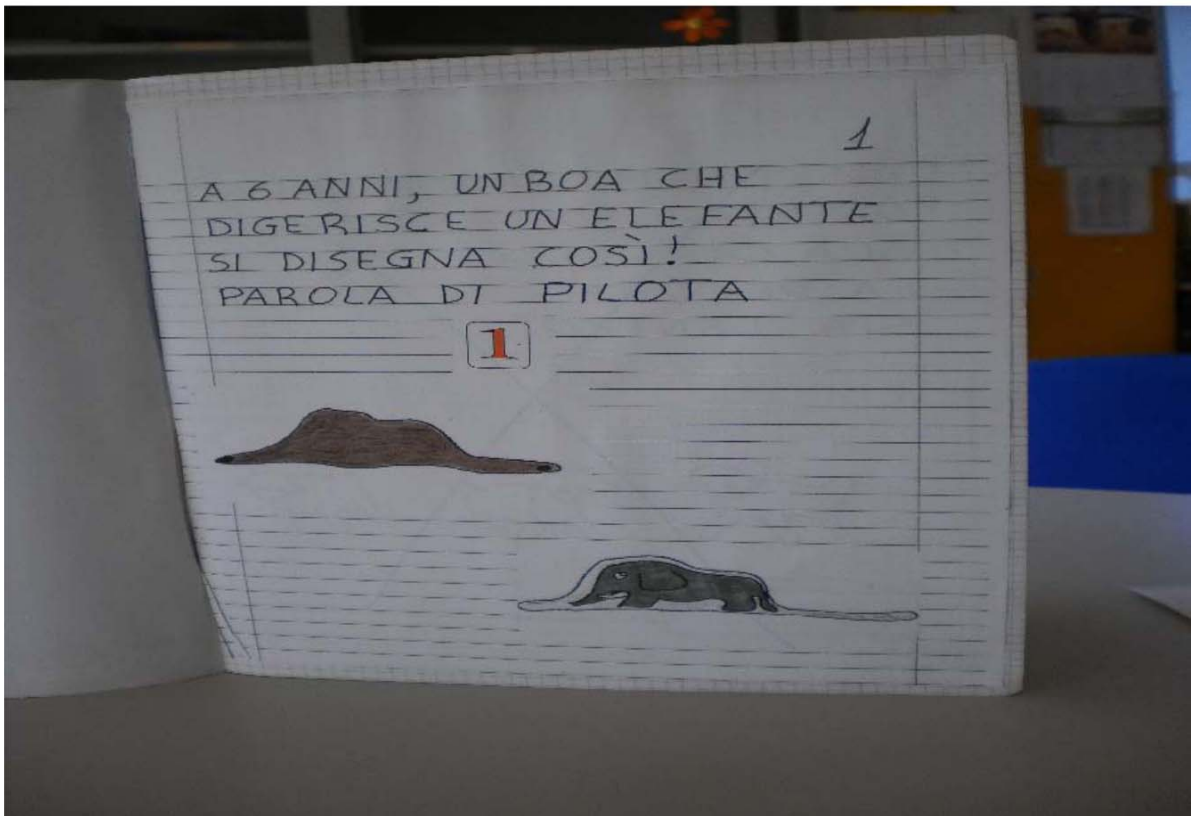 1
A 6 ANNI, UN BOA CHE
DIGERISCE UN ELEFANTE
SI DISEGNA COSÌ!
PAROLA DI PILOTA
1